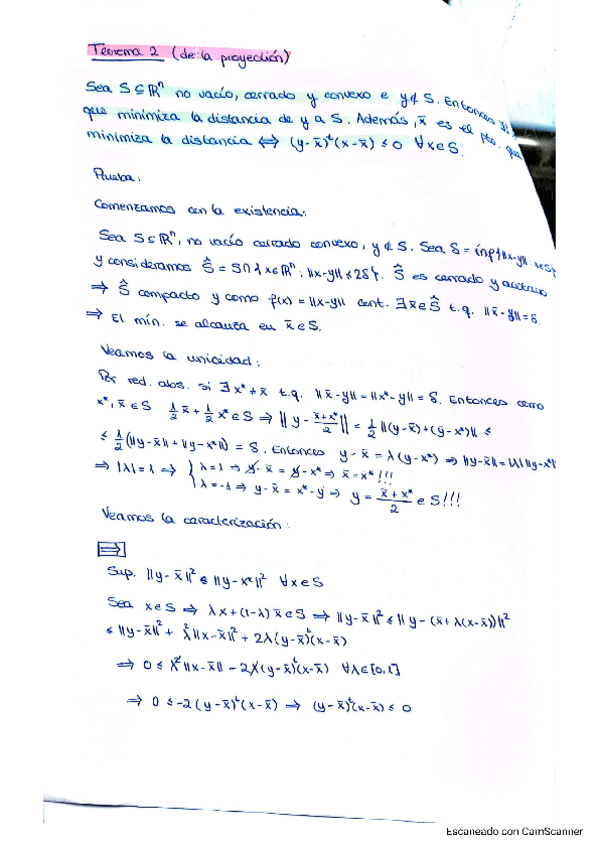 Teorema 2 (de la proyección)
Sea S ⊆ ℝⁿ no vacío, cerrado y convexo e y ∉ S. Entonces ∃!
que minimiza la distancia de y a S. Además, x̄ es el pto. que
minimiza la distancia ⇔ (y-x̄)ᵗ(x-x̄) ≤ 0 ∀x∈S.
Prueba:
Comenzamos con la existencia:
Sea S ⊆ ℝⁿ, no vacío cerrado convexo, y ∉ S. Sea δ = inf{||x-y||: x∈S}
y consideramos Ŝ = S∩{x∈ℝⁿ: ||x-y|| ≤ 2δ}. Ŝ es cerrado y acotado
⇒ Ŝ compacto y como f(x) = ||x-y|| cont. ∃x̄∈Ŝ t.q. ||x̄-y|| = δ.
⇒ El mín. se alcanza en x̄∈S.
Veamos la unicidad:
Por red. abs. si ∃ x* ≠ x̄ t.q. ||x̄-y|| = ||x*-y|| = δ. Entonces como
x*, x̄ ∈ S ½x̄ + ½x* ∈ S ⇒ ||y - (x̄+x*)/2|| = ½||(y-x̄)+(y-x*)|| ≤
≤ ½(||y-x̄|| + ||y-x*||) = δ. Entonces y-x̄ = λ(y-x*) ⇒ ||y-x̄|| = |λ| ||y-x*||
⇒ |λ| = 1 ⇒ { λ=1 → y-x̄ = y-x* ⇒ x̄ = x* !!!
λ=-1 → y-x̄ = x*-y → y = (x̄+x*)/2 ∈ S!!!
Veamos la caracterización:
⇒
Sup. ||y-x̄||² ≤ ||y-x*||² ∀x∈S
Sea x∈S ⇒ λx+(1-λ)x̄∈S ⇒ ||y-x̄||² ≤ ||y-(x̄+λ(x-x̄))||²
≤ ||y-x̄||² + λ²||x-x̄||² + 2λ(y-x̄)ᵗ(x-x̄)
⇒ 0 ≤ λ²||x-x̄|| - 2λ(y-x̄)ᵗ(x-x̄) ∀λ∈[0,1]
⇒ 0 ≤ -2(y-x̄)ᵗ(x-x̄) ⇒ (y-x̄)ᵗ(x-x̄) ≤ 0
Escaneado con CamScanner